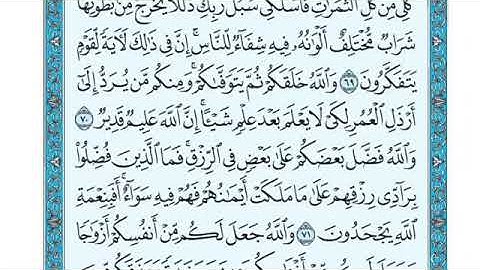 كُلِى مِن كُلِّ ٱلثَّمَرَٰتِ فَٱسْلُكِى سُبُلَ رَبِّكِ ذُلُلًا يَخْرُجُ مِنۢ بُطُونِهَا
شَرَابٌ مُّخْتَلِفٌ أَلْوَٰنُهُۥ فِيهِ شِفَآءٌ لِّلنَّاسِ إِنَّ فِى ذَٰلِكَ لَـَٔايَةً لِّقَوْمٍ
يَتَفَكَّرُونَ ٦٩ وَٱللَّهُ خَلَقَكُمْ ثُمَّ يَتَوَفَّىٰكُمْ وَمِنكُم مَّن يُرَدُّ إِلَىٰٓ
أَرْذَلِ ٱلْعُمُرِ لِكَىْ لَا يَعْلَمَ بَعْدَ عِلْمٍ شَيْـًٔا إِنَّ ٱللَّهَ عَلِيمٌ قَدِيرٌ ٧٠
وَٱللَّهُ فَضَّلَ بَعْضَكُمْ عَلَىٰ بَعْضٍ فِى ٱلرِّزْقِ فَمَا ٱلَّذِينَ فُضِّلُوا۟
بِرَآدِّى رِزْقِهِمْ عَلَىٰ مَا مَلَكَتْ أَيْمَٰنُهُمْ فَهُمْ فِيهِ سَوَآءٌ أَفَبِنِعْمَةِ
ٱللَّهِ يَجْحَدُونَ ٧١ وَٱللَّهُ جَعَلَ لَكُم مِّنْ أَنفُسِكُمْ أَزْوَٰجًا